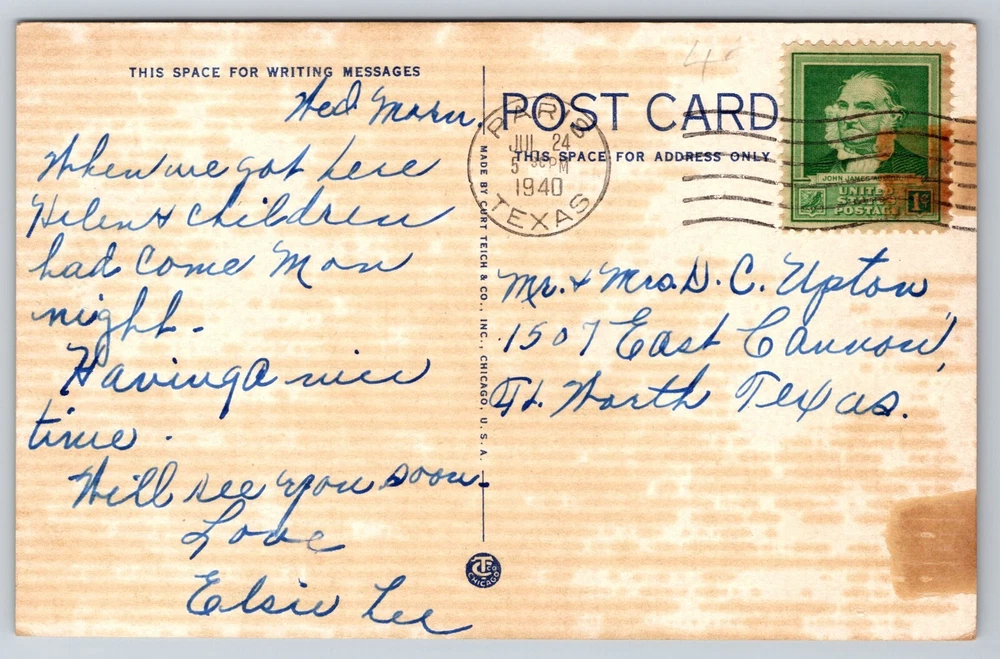 4
THIS SPACE FOR WRITING MESSAGES
Wed Morn.
When we got here
Helen & children
had come Mon
night.
Having a nice
time.
Will see you soon.
Love
Elsie Lee
MADE BY CURT TEICH & CO., INC., CHICAGO, U.S.A.
CT CO
CHICAGO
POST CARD
THIS SPACE FOR ADDRESS ONLY
PARIS
JUL 24
5 30 PM
1940
TEXAS
JOHN JAMES
UNITED
STATES
POSTAGE
1¢
Mr. & Mrs. D. C. Upton
1507 East Cannon,
Ft. Worth Texas.